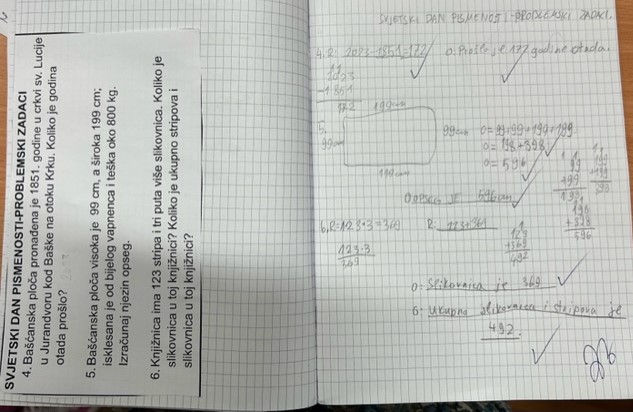 SVJETSKI DAN PISMENOSTI-PROBLEMSKI ZADACI
4. Bašćanska ploča pronađena je 1851. godine u crkvi sv. Lucije
u Jurandvoru kod Baške na otoku Krku. Koliko je godina
otada prošlo?
5. Bašćanska ploča visoka je 99 cm, a široka 199 cm;
isklesana je od bijelog vapnenca i teška oko 800 kg.
Izračunaj njezin opseg.
6. Knjižnica ima 123 stripa i tri puta više slikovnica. Koliko je
slikovnica u toj knjižnici? Koliko je ukupno stripova i
slikovnica u toj knjižnici?
SVJETSKI DAN PISMENOSTI-PROBLEMSKI ZADACI.
4. R: 2023-1851=172 O: Prošlo je 172 godine otada.
2023
-1851
172
199cm
5.
99cm
99cm
199cm
O=99+99+199+199
O=198+398
O=596
99
+99
198
199
+199
398
198
+398
596
O: OPSEG JE 596cm
6. R=123·3=369 R: 123+369
123·3
369
123
+369
492
O: Slikovnica je 369
O: Ukupno slikovnica i stripova je
492.